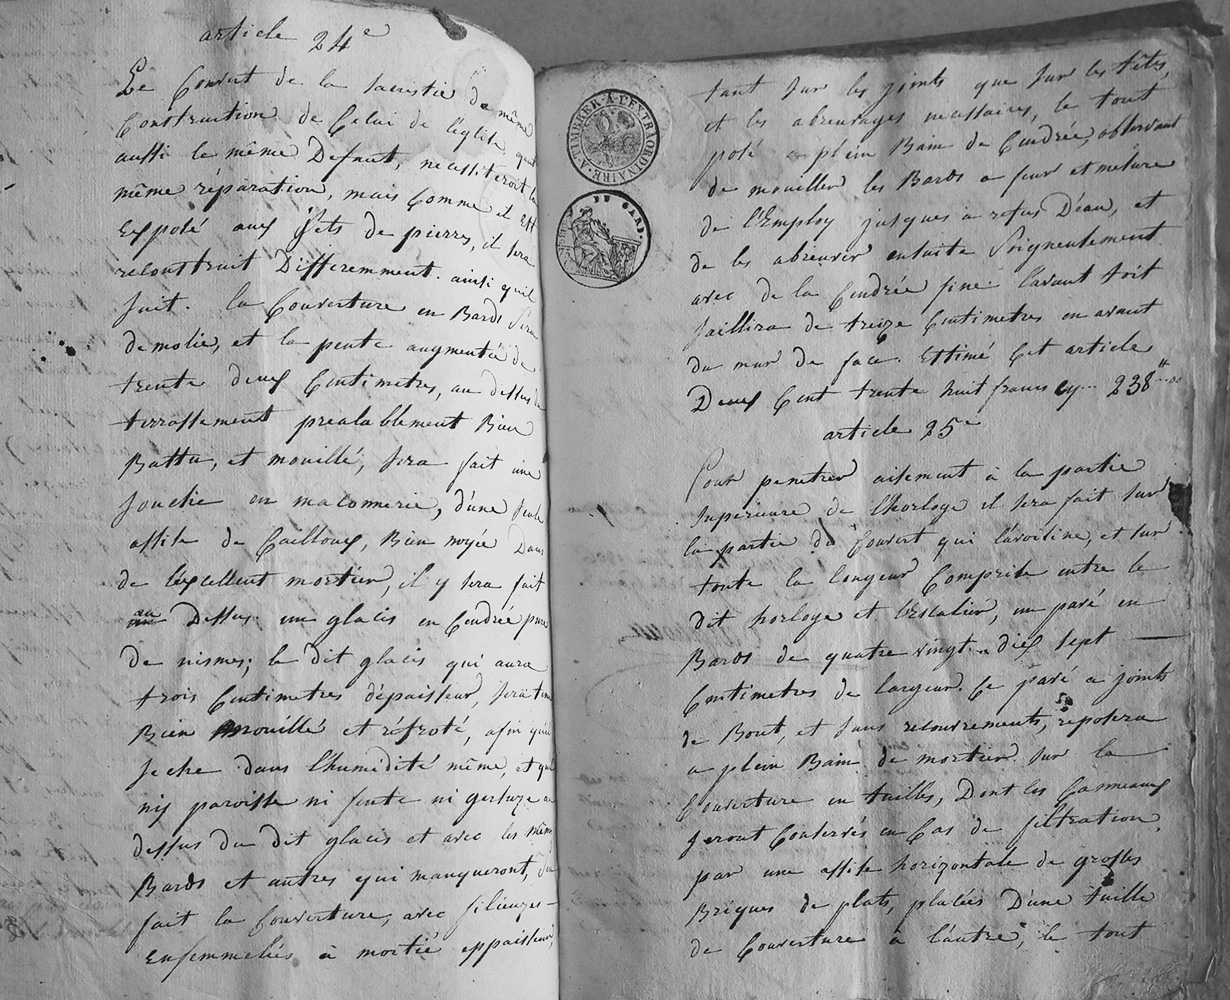 article 24e
Le Couvert de la sacristie de même
Construction de Celui de l'église, ayant
aussi le même Defaut, necessiteroit la
même réparation, mais Comme il Est
Exposé aux jets de pierres, il sera
reconstruit Differemment. ainsi qu'il
suit. la Couverture en Bards sera
demolie, et la pente augmentée de
trente deux Centimetres, au dessus du
terrassement prealablement Bien
Battu, et mouillé, sera fait une
souche en maconnerie, d'une seule
assise de Cailloux, Bien noyée Dans
de l'excellent mortier, il y sera fait
au Dessus un glacis en Cendrée pure
de nismes; le dit glacis qui aura
trois Centimetres d'épaisseur, sera tenu
Bien mouillé et réfroté, afin qu'il
seche dans l'humidité même, et qu'il
n'y paroisse ni fente ni gersure au
dessus du dit glacis et avec les mêmes
Bards et autres qui manqueront, sera
fait la Couverture, avec
à mortié
A TIMBRER·A·L'EXTRAORDINAIRE
DU GARD.
tant sur les joints que sur les têtes,
et les abreuvages necessaires, le tout
posé a plein Bain de Cendrée, observant
de mouiller les Bards a feur et mesure
de l'Employ jusques à refus D'eau, et
de les abreuver ensuite soigneusement
avec de la Cendrée fine. l'avant toit
saillira de treize Centimetres en avant
du mur de face. Estimé Cet article
Deux Cent trente huit francs cy... 238"00
article 25e
Pour penetrer aisement à la partie
superieure de l'horloge il sera fait sur
la partie du Couvert qui l'avoisine, et sur
toute la longeur Comprise entre le
dit horloge et l'Escalier, un pavé en
Bards de quatre vingt dix sept
Centimetres de largeur. Ce pavé a joints
de Bout, et sans recouvrements, reposera
a plein Bain de mortier sur la
Couverture en tuilles, Dont les Canneaux
seront Conservés en Cas de filtration,
par une assise horizontale de grosses
Briques de plats, placées D'une tuille
de Couverture à l'autre, le tout